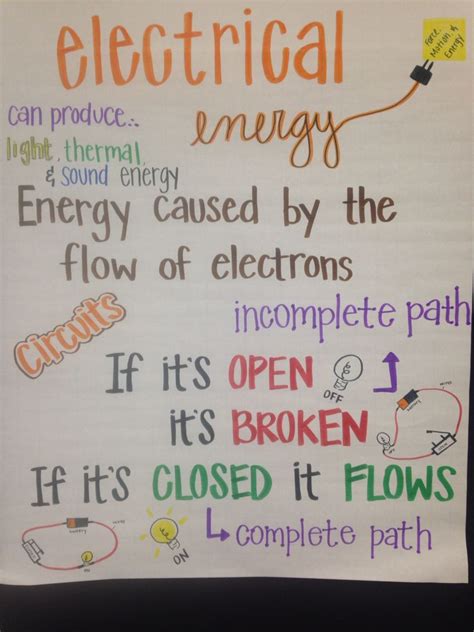 electrical
Force,
Motion, &
Energy
can produce...
energy
light, thermal,
& sound energy
Energy caused by the
flow of electrons
Circuits
incomplete path
If it's OPEN
OFF
it's BROKEN
If it's CLOSED it FLOWS
battery
ON
complete path